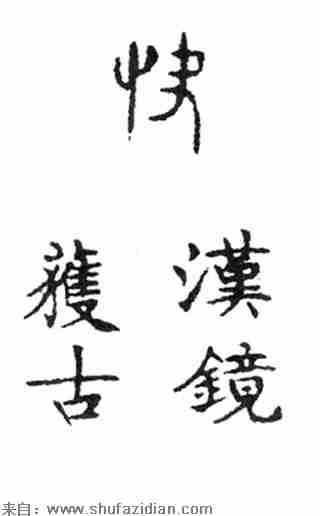 快
漢鏡
獲古
来自：www.shufazidian.com